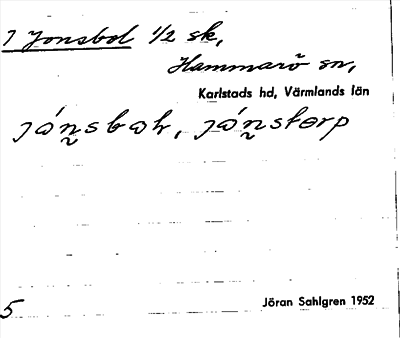 7 Jonsbol 1/2 sk,
Hammarö sn,
Karlstads hd, Värmlands län
jónsboh, jónstorp
5
Jöran Sahlgren 1952